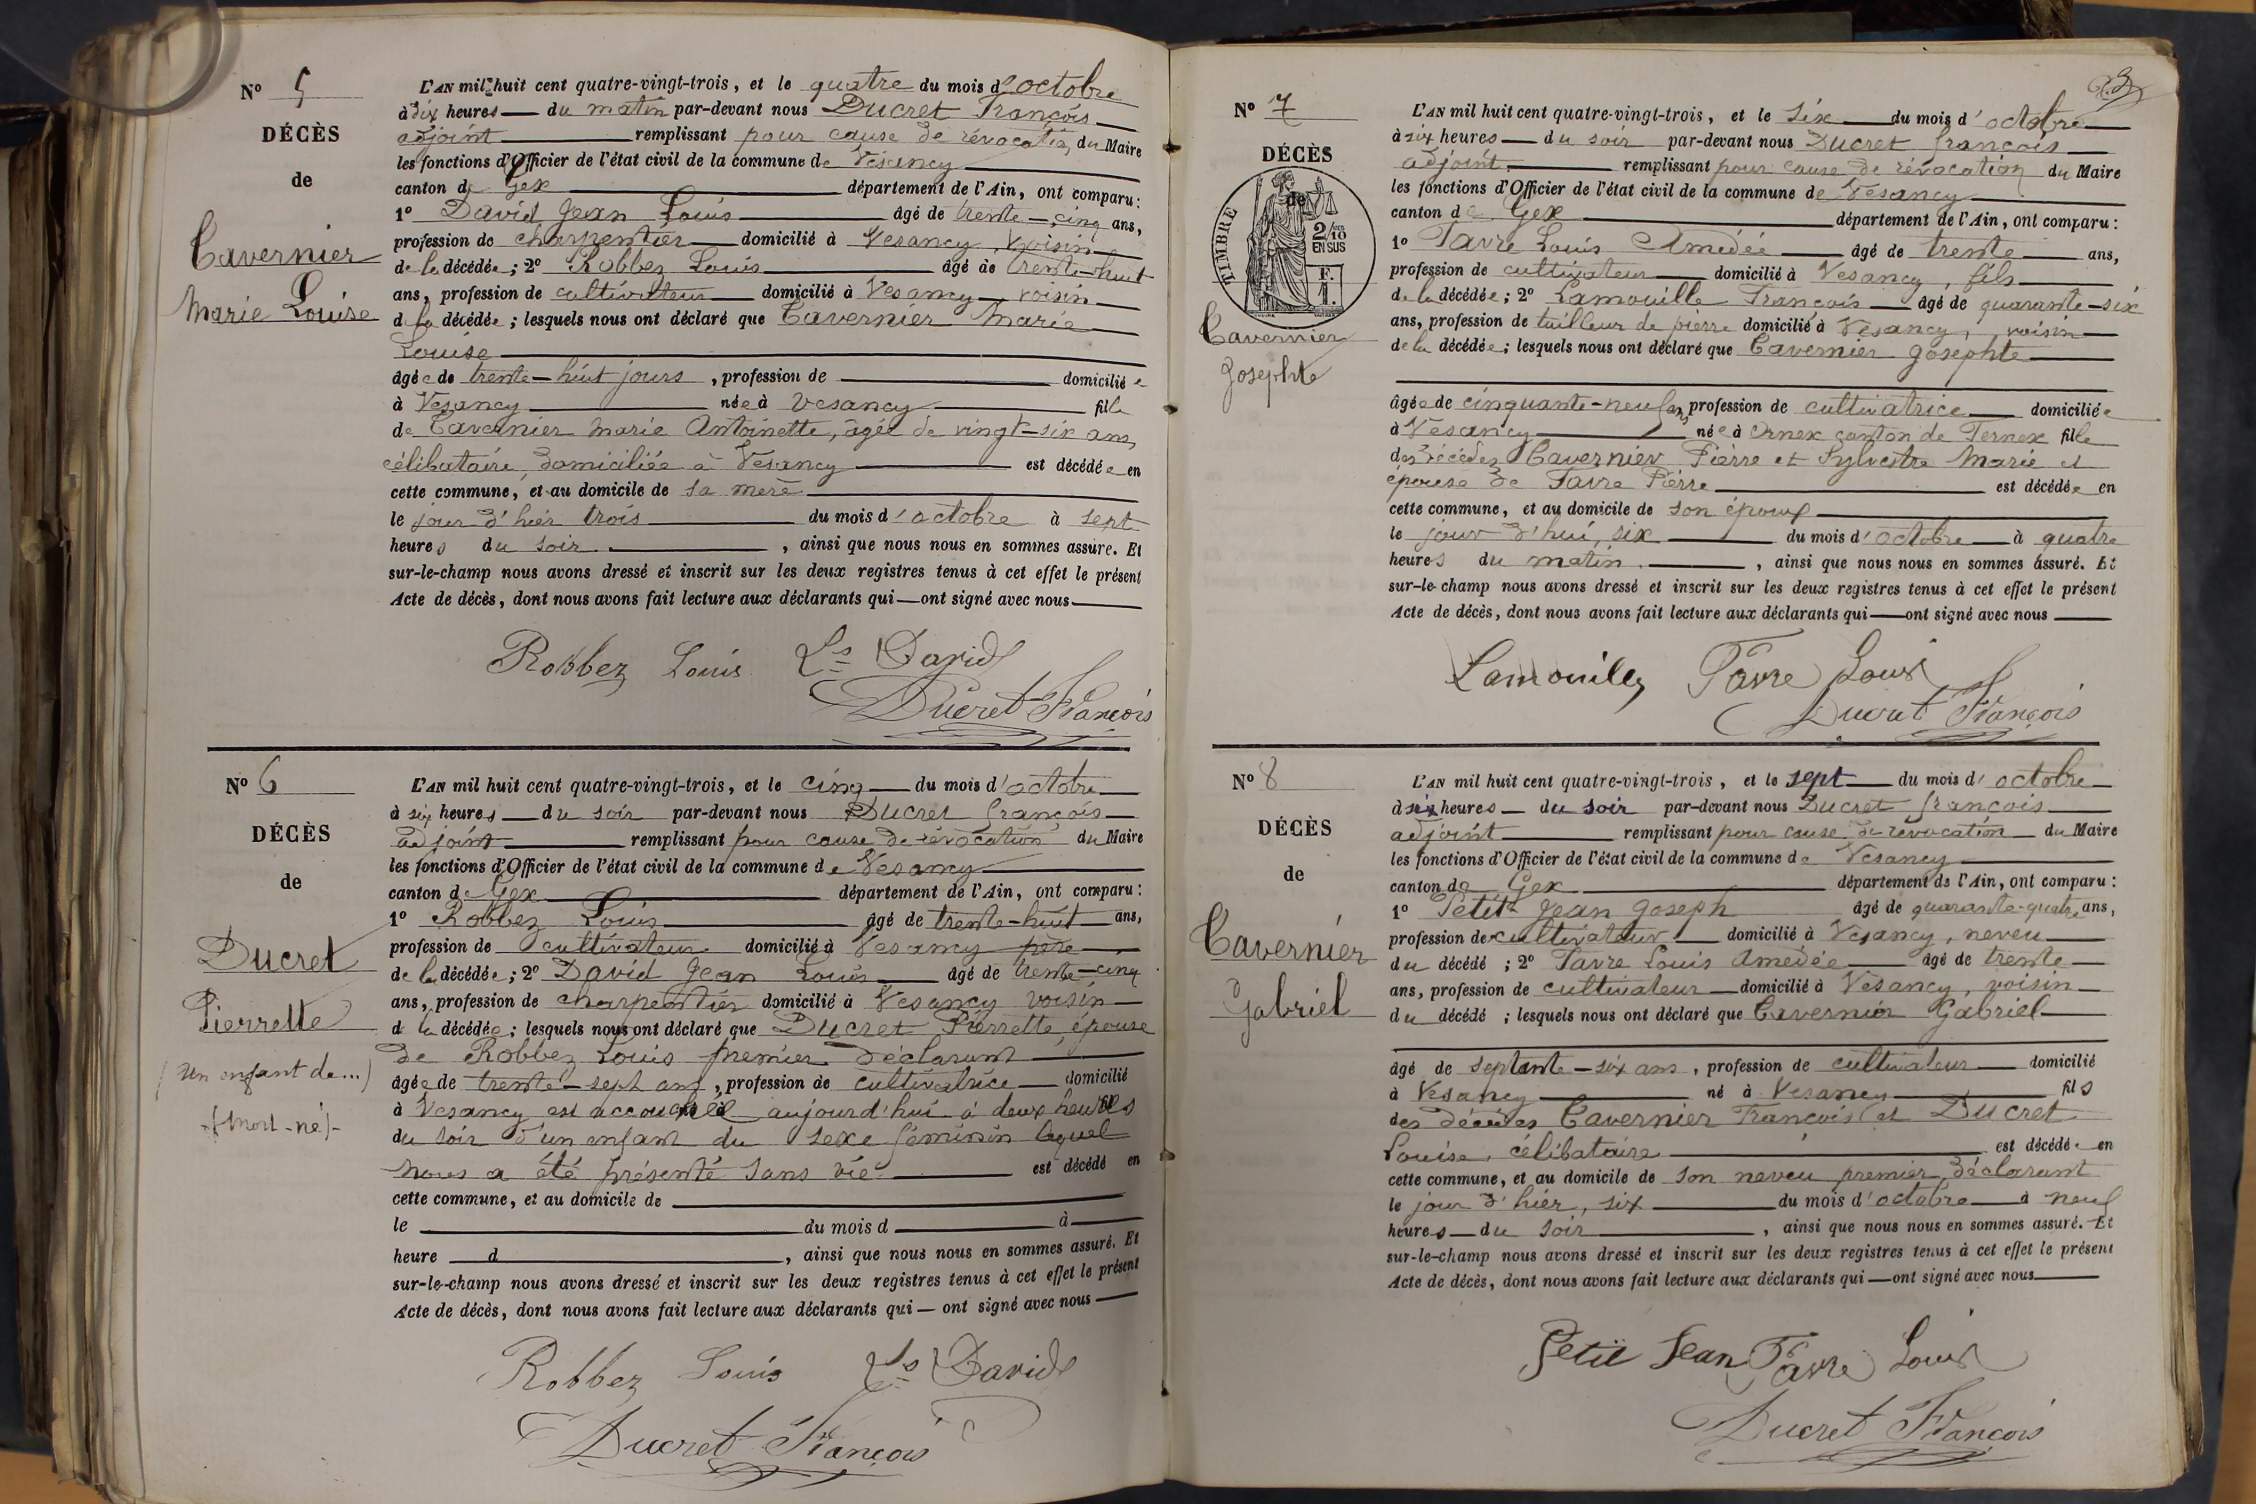 N° 5
DÉCÈS
de
Tavernier
Marie Louise
L'AN mil huit cent quatre-vingt-trois, et le quatre du mois d'octobre
à dix heures du matin par-devant nous Ducret François
adjoint remplissant pour cause de révocation, du Maire
les fonctions d'Officier de l'état civil de la commune de Vesancy
canton de Gex département de l'Ain, ont comparu:
1° David Jean Louis âgé de trente-cinq ans,
profession de charpentier domicilié à Vesancy, voisin
de la décédée; 2° Robbez Louis âgé de trente-huit
ans, profession de cultivateur domicilié à Vesancy voisin
de la décédée; lesquels nous ont déclaré que Tavernier Marie
Louise
âgée de trente-huit jours, profession de domiciliée
à Vesancy née à Vesancy fille
de Tavernier Marie Antoinette, âgée de vingt-six ans,
célibataire, domiciliée à Vesancy est décédée en
cette commune, et au domicile de sa mère
le jour d'hier trois du mois d'octobre à sept
heures du soir, ainsi que nous nous en sommes assuré. Et
sur-le-champ nous avons dressé et inscrit sur les deux registres tenus à cet effet le présent
Acte de décès, dont nous avons fait lecture aux déclarants qui ont signé avec nous
Robbez Louis Ls David
Ducret François
N° 6
DÉCÈS
de
Ducret
Pierrette
(un enfant de...)
(mort-né)
L'AN mil huit cent quatre-vingt-trois, et le cinq du mois d'octobre
à six heures du soir par-devant nous Ducret françois
adjoint remplissant pour cause de révocation du Maire
les fonctions d'Officier de l'état civil de la commune de Vesancy
canton de Gex département de l'Ain, ont comparu:
1° Robbez Louis âgé de trente-huit ans,
profession de cultivateur domicilié à Vesancy père
de la décédée; 2° David Jean Louis âgé de trente-cinq
ans, profession de charpentier domicilié à Vesancy voisin
de la décédée; lesquels nous ont déclaré que Ducret Pierrette, épouse
de Robbez Louis premier déclarant
âgée de trente-sept ans, profession de cultivatrice domicilié
à Vesancy est accouchée aujourd'hui à deux heures
du soir d'un enfant du sexe féminin lequel
nous a été présenté sans vie est décédé en
cette commune, et au domicile de
le du mois d à
heure d, ainsi que nous nous en sommes assuré. Et
sur-le-champ nous avons dressé et inscrit sur les deux registres tenus à cet effet le présent
Acte de décès, dont nous avons fait lecture aux déclarants qui ont signé avec nous
Robbez Louis Ls David
Ducret François
N° 7
DÉCÈS
de
TIMBRE
2/10
EN SUS
F.
1.
Tavernier
Josephte
L'AN mil huit cent quatre-vingt-trois, et le six du mois d'octobre
à six heures du soir par-devant nous Ducret françois
adjoint remplissant pour cause de révocation du Maire
les fonctions d'Officier de l'état civil de la commune de Vesancy
canton de Gex département de l'Ain, ont comparu:
1° Favre Louis Amédée âgé de trente ans,
profession de cultivateur domicilié à Vesancy, fils
de la décédée; 2° Lamouille François âgé de quarante-six
ans, profession de tailleur de pierre domicilié à Vesancy, voisin
de la décédée; lesquels nous ont déclaré que Tavernier Josephte
âgée de cinquante-neuf ans, profession de cultivatrice domiciliée
à Vesancy née à Ornex canton de Fernex fille
des décédés Tavernier Pierre et Sylvestre Marie et
épouse de Favre Pierre est décédée en
cette commune, et au domicile de son époux
le jour d'hui, six du mois d'octobre à quatre
heures du matin, ainsi que nous nous en sommes assuré. Et
sur-le-champ nous avons dressé et inscrit sur les deux registres tenus à cet effet le présent
Acte de décès, dont nous avons fait lecture aux déclarants qui ont signé avec nous
Lamouille Favre Louis
Ducret François
N° 8
DÉCÈS
de
Tavernier
Gabriel
L'AN mil huit cent quatre-vingt-trois, et le sept du mois d'octobre
à six heures du soir par-devant nous Ducret françois
adjoint remplissant pour cause de révocation du Maire
les fonctions d'Officier de l'état civil de la commune de Vesancy
canton de Gex département de l'Ain, ont comparu:
1° Petit Jean Joseph âgé de quarante-quatre ans,
profession de cultivateur domicilié à Vesancy, neveu
du décédé; 2° Favre Louis Amédée âgé de trente
ans, profession de cultivateur domicilié à Vesancy, voisin
du décédé; lesquels nous ont déclaré que Tavernier Gabriel
âgé de septante-six ans, profession de cultivateur domicilié
à Vesancy né à Vesancy fils
des décédés Tavernier François et Ducret
Louise, célibataire est décédé en
cette commune, et au domicile de son neveu premier déclarant
le jour d'hier, six du mois d'octobre à neuf
heures du soir, ainsi que nous nous en sommes assuré. Et
sur-le-champ nous avons dressé et inscrit sur les deux registres tenus à cet effet le présent
Acte de décès, dont nous avons fait lecture aux déclarants qui ont signé avec nous
Petit Jean Favre Louis
Ducret François